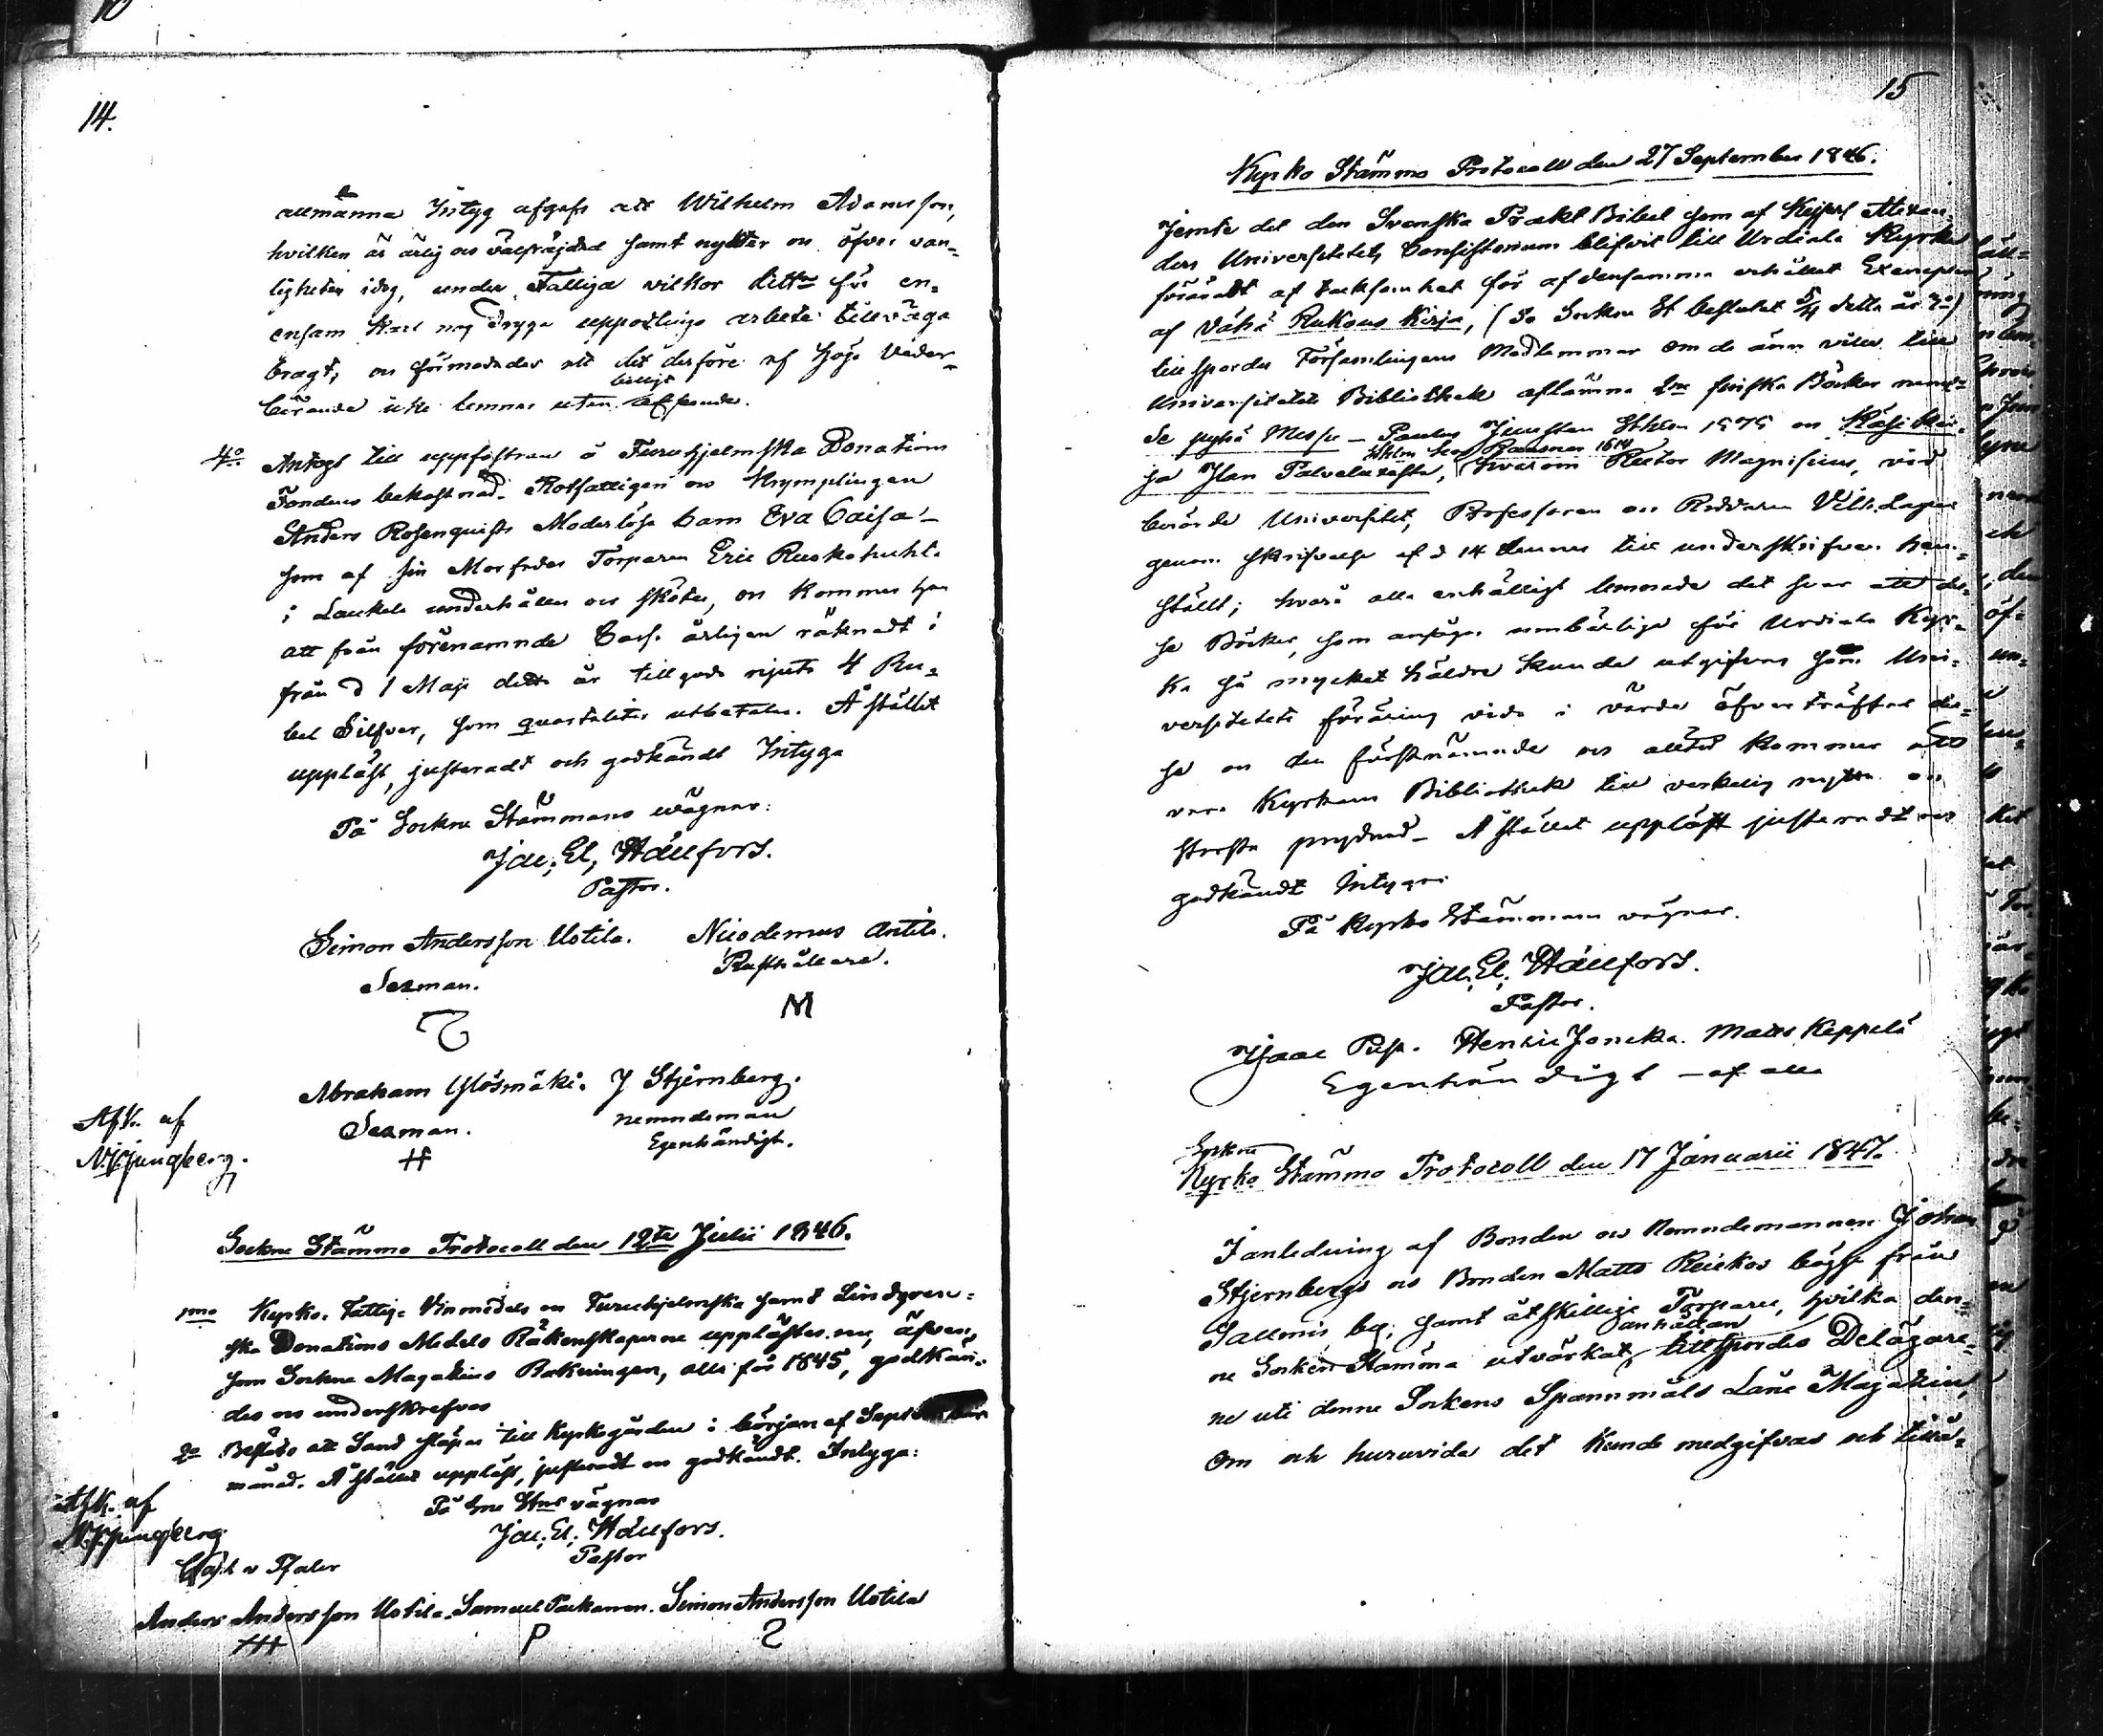 14.
allmänna Intyg afgafs att Wilhelm Adamsson,
hvilken är ärlig os välfräjdad samt nykter os öfver van=
ligheten idog, under Fattiga vilkor för en=
ensam Karl nog dryga upporlings arbete tillväga
bragt, os förmodades att det derföre af höga Veder=
börande icke lemnas utan billigt afseende.
4o Antogs till uppfostran å Furuhjelmska Donations
Fondens bekostnad Rotfattigen os Krymplingen
Anders Rosenquists Moderlösa barn Eva Caisa
som af sin Morfader Torparen Eric Ruskohuhta
i Laukela underhålles os skötes, os kommer han
att från förenämnde Cass. årligen räknadt i
från d 1 Maji detta år tillgodo njuta 4 Ru=
bel Silfver, som quartaliter utbetalas. Å stället
uppläst, justeradt och godkändt Intyga
På Sockne Stämmans wägnar:
Jac. El. Hällfors.
Pastor.
Simon Andersson Uotila. Nicodemus Antila.
Sexman. Rusthållare.
M
Abraham Ylösmäki. J Stjernberg.
Sexman. nemndeman
Egenhändigt.
Afk. af
N. Ljungberg.
Sockne Stämmo Protocoll den 12te Julii 1846.
1mo Kyrko, Fattig, Vinmedels os Furuhjelmska samt Lindgren=
ska Donations Medels Räkenskaperne upplästes nu, äfven
som Sockne Magakins Räkningen, alla för 1845, godkän=
des os underskrefvos
2o Beslöts att Sand släpas till Kyrkogården i början af September
månad. Å stället uppläst, justeradt os godkändt. Intyga:
På Sne Stns vägnar
Jac. El. Hällfors.
Pastor
Afk. af
N. Ljungberg
Carl v Pfaler
Anders Andersson Uotila. Samuel Packanen. Simon Andersson Uotila
15
Kyrko Stämmo Protocoll den 27 September 1846.
Jemte det den Svenska Prakt Bibel som af Kejserl Alexan=
ders Universitetets Consistorium blifvit till Urdiala Kyrka
föräradt af tacksamhet för af densamma erhållet Exemplar
af Vähä Rukous Kirja, (Se Socken St beslutet 5/4 detta år 7o)
tillspordes Församlingens Medlemmar om de änn ville till
Universitetets Bibliothek aflämna 2ne finska Böcker nemd=
de pyhä Messu – Paulus Juusten Sthlm 1575 os Käsi Kir=
ja Ilan Palveluxesta, Sthlm 1614 hvarom Rector Magnificus, vid
berörde Universitet, Professoren os Riddaren Vilh. Lagus
genom skrifvelse af d 14 dennes till underskrifven hem=
ställt; hvarå alla enhälligt lemnade det svar att des=
sa Böcker, som anses umbärliga för Urdiala Kyr=
ka så mycket häldre kunde utgifvas som Uni=
versitetets föräring vida i värde öfverträffar des=
sa os den förstnämnde os alltid kommer att
vara Kyrkans Bibliothek till verkelig nytta os
största prydnad – Å stället uppläst justeradt os
godkändt Intygar
På Kyrko Stämmans vägnar.
Jac. El. Hällfors.
Pastor.
Isaac Pispa. Henric Joncka. Matts Keppilä
Egenhändigt – af alla
Sockne
Kyrko Stämmo Protocoll den 17 Januarii 1847.
I anledning af Bonden os Nemndemannen Johan
Stjernbergs os Bonden Matts Reickos bägge från
Salmis by, samt åtskillige Torpare, hvilka den=
ne Socken Stämma utvärkat, anhållan tillspordes Delägare=
ne uti denne Sockens Spannmåls Låne Magakin,
om och huruvida det kunde medgifvas och tillå=